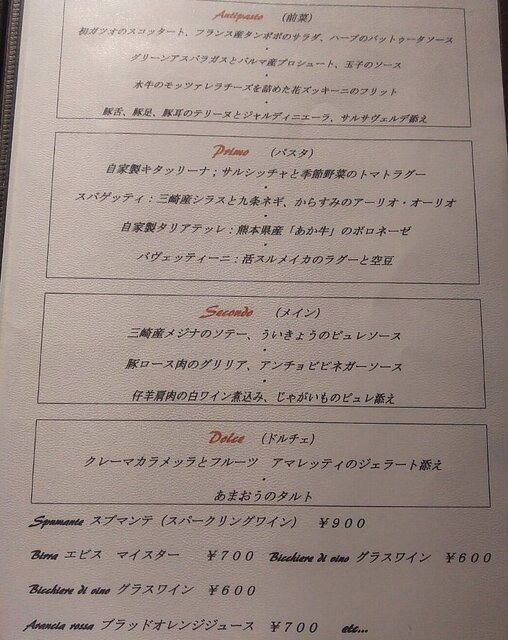 Antipasto （前菜）
初ガツオのスコッタート、フランス産タンポポのサラダ、ハーブのバットゥータソース
・
グリーンアスパラガスとパルマ産プロシュート、玉子のソース
・
水牛のモッツァレラチーズを詰めた花ズッキーニのフリット
・
豚舌、豚足、豚耳のテリーヌとジャルディニエーラ、サルサヴェルデ添え
Primo （パスタ）
自家製キタッリーナ；サルシッチャと季節野菜のトマトラグー
・
スパゲッティ：三崎産シラスと九条ネギ、からすみのアーリオ・オーリオ
・
自家製タリアテッレ：熊本県産「あか牛」のボロネーゼ
・
バヴェッティーニ：活スルメイカのラグーと空豆
Secondo （メイン）
三崎産メジナのソテー、ういきょうのピュレソース
・
豚ロース肉のグリリア、アンチョビビネガーソース
・
仔羊肩肉の白ワイン煮込み、じゃがいものピュレ添え
Dolce （ドルチェ）
クレーマカラメッラとフルーツ アマレッティのジェラート添え
・
あまおうのタルト
Spumante スプマンテ（スパークリングワイン） ￥９００
Birra エビス マイスター ￥７００ Bicchiere di vino グラスワイン ￥６００
Bicchiere di vino グラスワイン ￥６００
Arancia rossa ブラッドオレンジジュース ￥７００ etc...